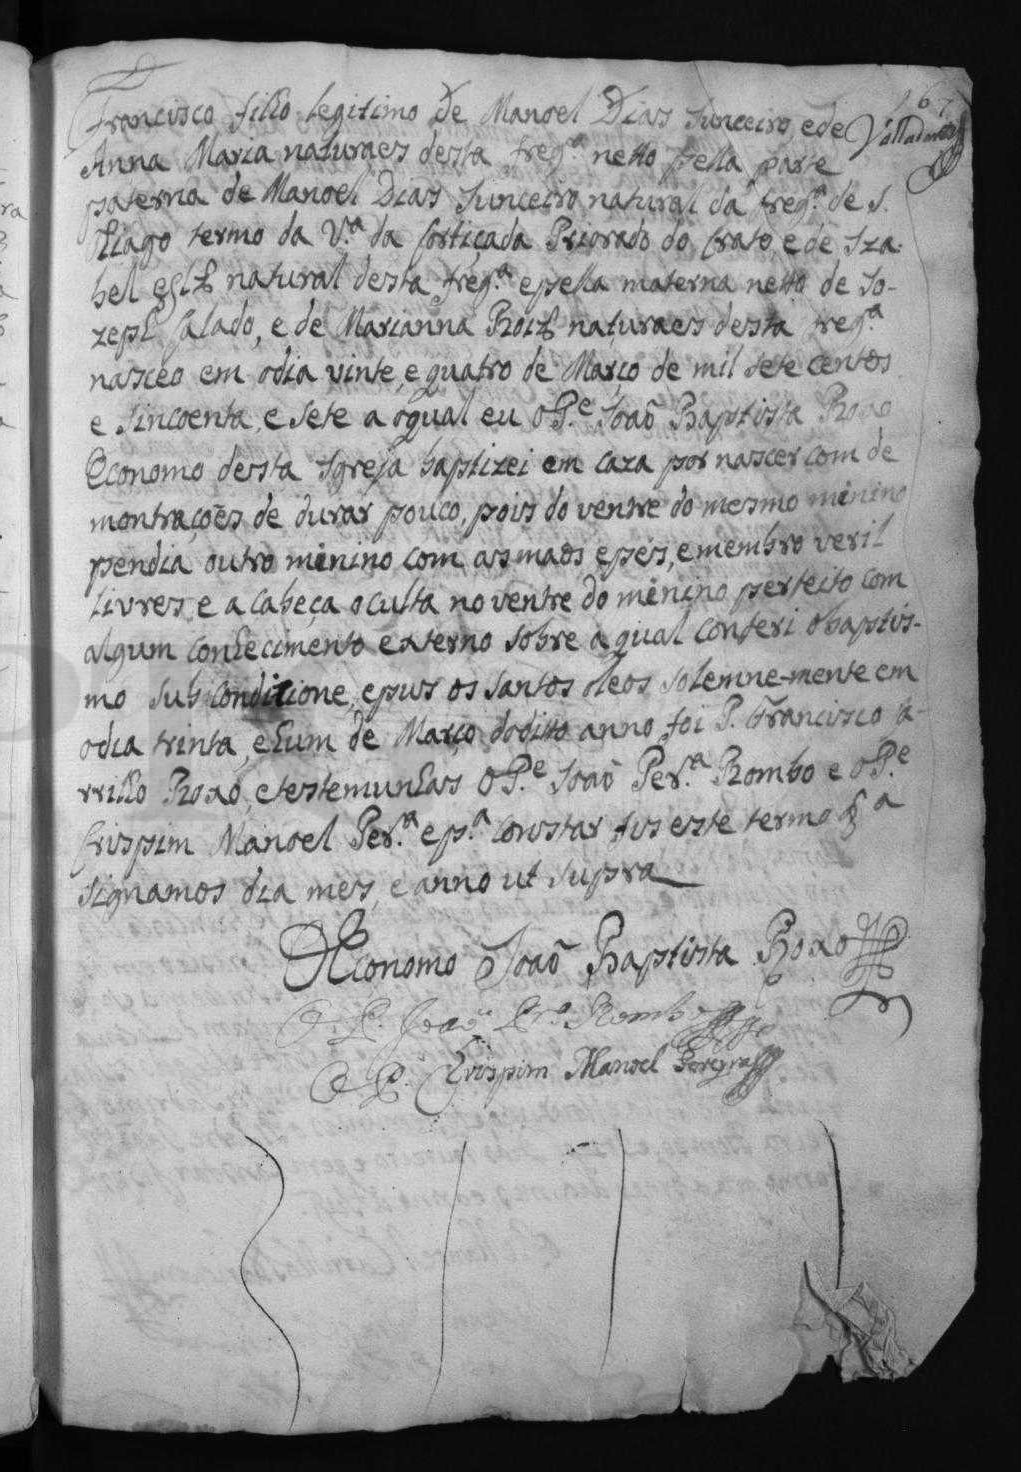 167
Valladares
Francisco filho legitimo de Manoel Dias Junceiro, e de
Anna Maria naturaes desta freg.ª netto pella parte
paterna de Manoel Dias Junceiro natural da freg.ª de S.
Thiago termo da V.ª da Cortiçada Priorado do Crato, e de Iza-
bel natural desta freg.ª e pella materna netto de Jo-
zeph Salado, e de Marianna Roiz naturaes desta freg.ª
nasceo em o dia vinte, e quatro de Março de mil sete centos
e sincoenta, e sete a o qual eu o P.e João Baptista Roxo
Economo desta Igreja baptizei em caza por nascer com de
montraçoẽs de durar pouco, pois do ventre do mesmo minino
pendia outro minino com as maos e pés, e membro veril
livres, e a cabeça oculta no ventre do minino perfeito com
algum conhecimento externo sobre a qual conferi o baptis-
mo sub conditione, e pus os santos oleos solemne-mente em
o dia trinta, e hum de Março do ditto anno, foi P. Francisco Ja-
rrilho Roxo, e testemunhas o P.e João Per.ª Rombo e o P.e
Crispim Manoel Per.ª e p.ª constar fis este termo q̃ a
signamos dia mes, e anno ut supra
O Economo João Baptista Roxo
O P. João Pr.ª Rombo
O P. Crispim Manoel Pereyra